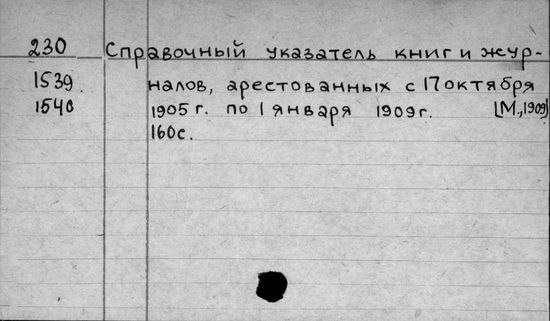 230 Справочный указатель книг и жур-
1539 налов, арестованных с 17 октября
1540 1905 г. по 1 января 1909 г. [М., 1909]
160 с.